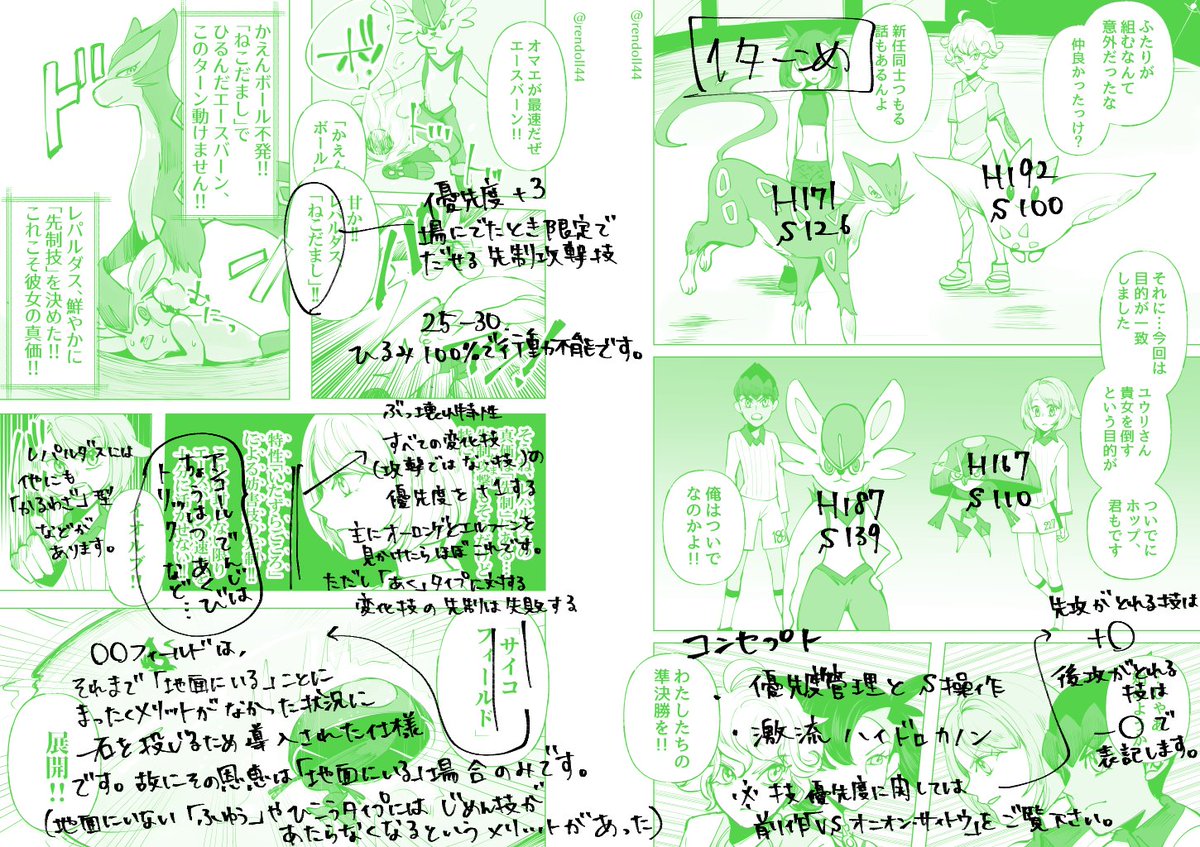 ふたりが
組むなんて
意外だったな
仲良かったっけ?
新任同士つもる
話もあるんよ
1ターンめ
H192
S100
H171
S126
それに…今回は
目的が一致
しました
ユウリさん
貴女を倒す
という目的が
ついでに
ホップ、
君もです
俺はついで
なのかよ!!
H167
S110
H187
S139
わたしたちの
準決勝を!!
先攻がとれる技は
+〇
後攻がとれる
技は
-〇で
表記します。
コンセプト
・優先度管理とS操作
・激流ハイドロカノン
※技優先度に関しては
前作「VSオニオン・サイトウ」をご覧下さい。
@rendoll44
@rendoll44
オマエが最速だぜ
エースバーン!!
ボッ
「かえん
ボール
甘か!!
レパルダス
「ねこだまし」!!
優先度+3
場にでたとき限定で
だせる先制攻撃技
25-30.
ひるみ100%で行動不能です。
ド
かえんボール不発!!
「ねこだまし」で
ひるんだエースバーン、
このターン動けません!!
レパルダス、鮮やかに
「先制技」を決めた!!
これこそ彼女の真価!!
ぶっ壊れ特性
すべての変化技
(攻撃ではない技)の
優先度を+1する
主にオーロンゲとエルフーンを
見かけたらほぼこれです。
ただし「あく」タイプに対する
変化技の先制は失敗する
特性「いたずらごころ」
による
アンコールでんじは
ちょうはつあくび
トリック など…
レパルダスには
他にも
「かるわざ」型
などが
あります。
サイコ
フィールド」
展開!!
〇〇フィールドは、
それまで「地面にいる」ことに
まったくメリットがなかった状況に
一石を投じるため導入された仕様
です。故にその恩恵は「地面にいる」場合のみです。
(地面にいない「ふゆう」やひこうタイプにはじめん技が
あたらなくなるというメリットがあった)